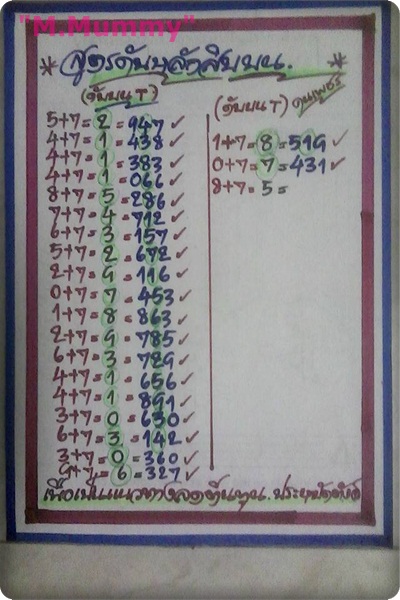 "M.Mummy"
* สูตรดับบนหลักสิบบน. *
(ดับบน T)
5+7=2=947✓
4+7=1=438✓
4+7=1=383✓
4+7=1=066✓
8+7=5=286✓
7+7=4=712✓
6+7=3=157✓
5+7=2=672✓
2+7=9=116✓
0+7=7=453✓
1+7=8=863✓
2+7=9=785✓
6+7=3=729✓
4+7=1=656✓
4+7=1=891✓
3+7=0=630✓
6+7=3=142✓
3+7=0=360✓
9+7=6=327✓
(ดับบน T)
1+7=8=519✓
0+7=7=431✓
8+7=5=
เพื่อเป็นแนวทางลดต้นทุน.